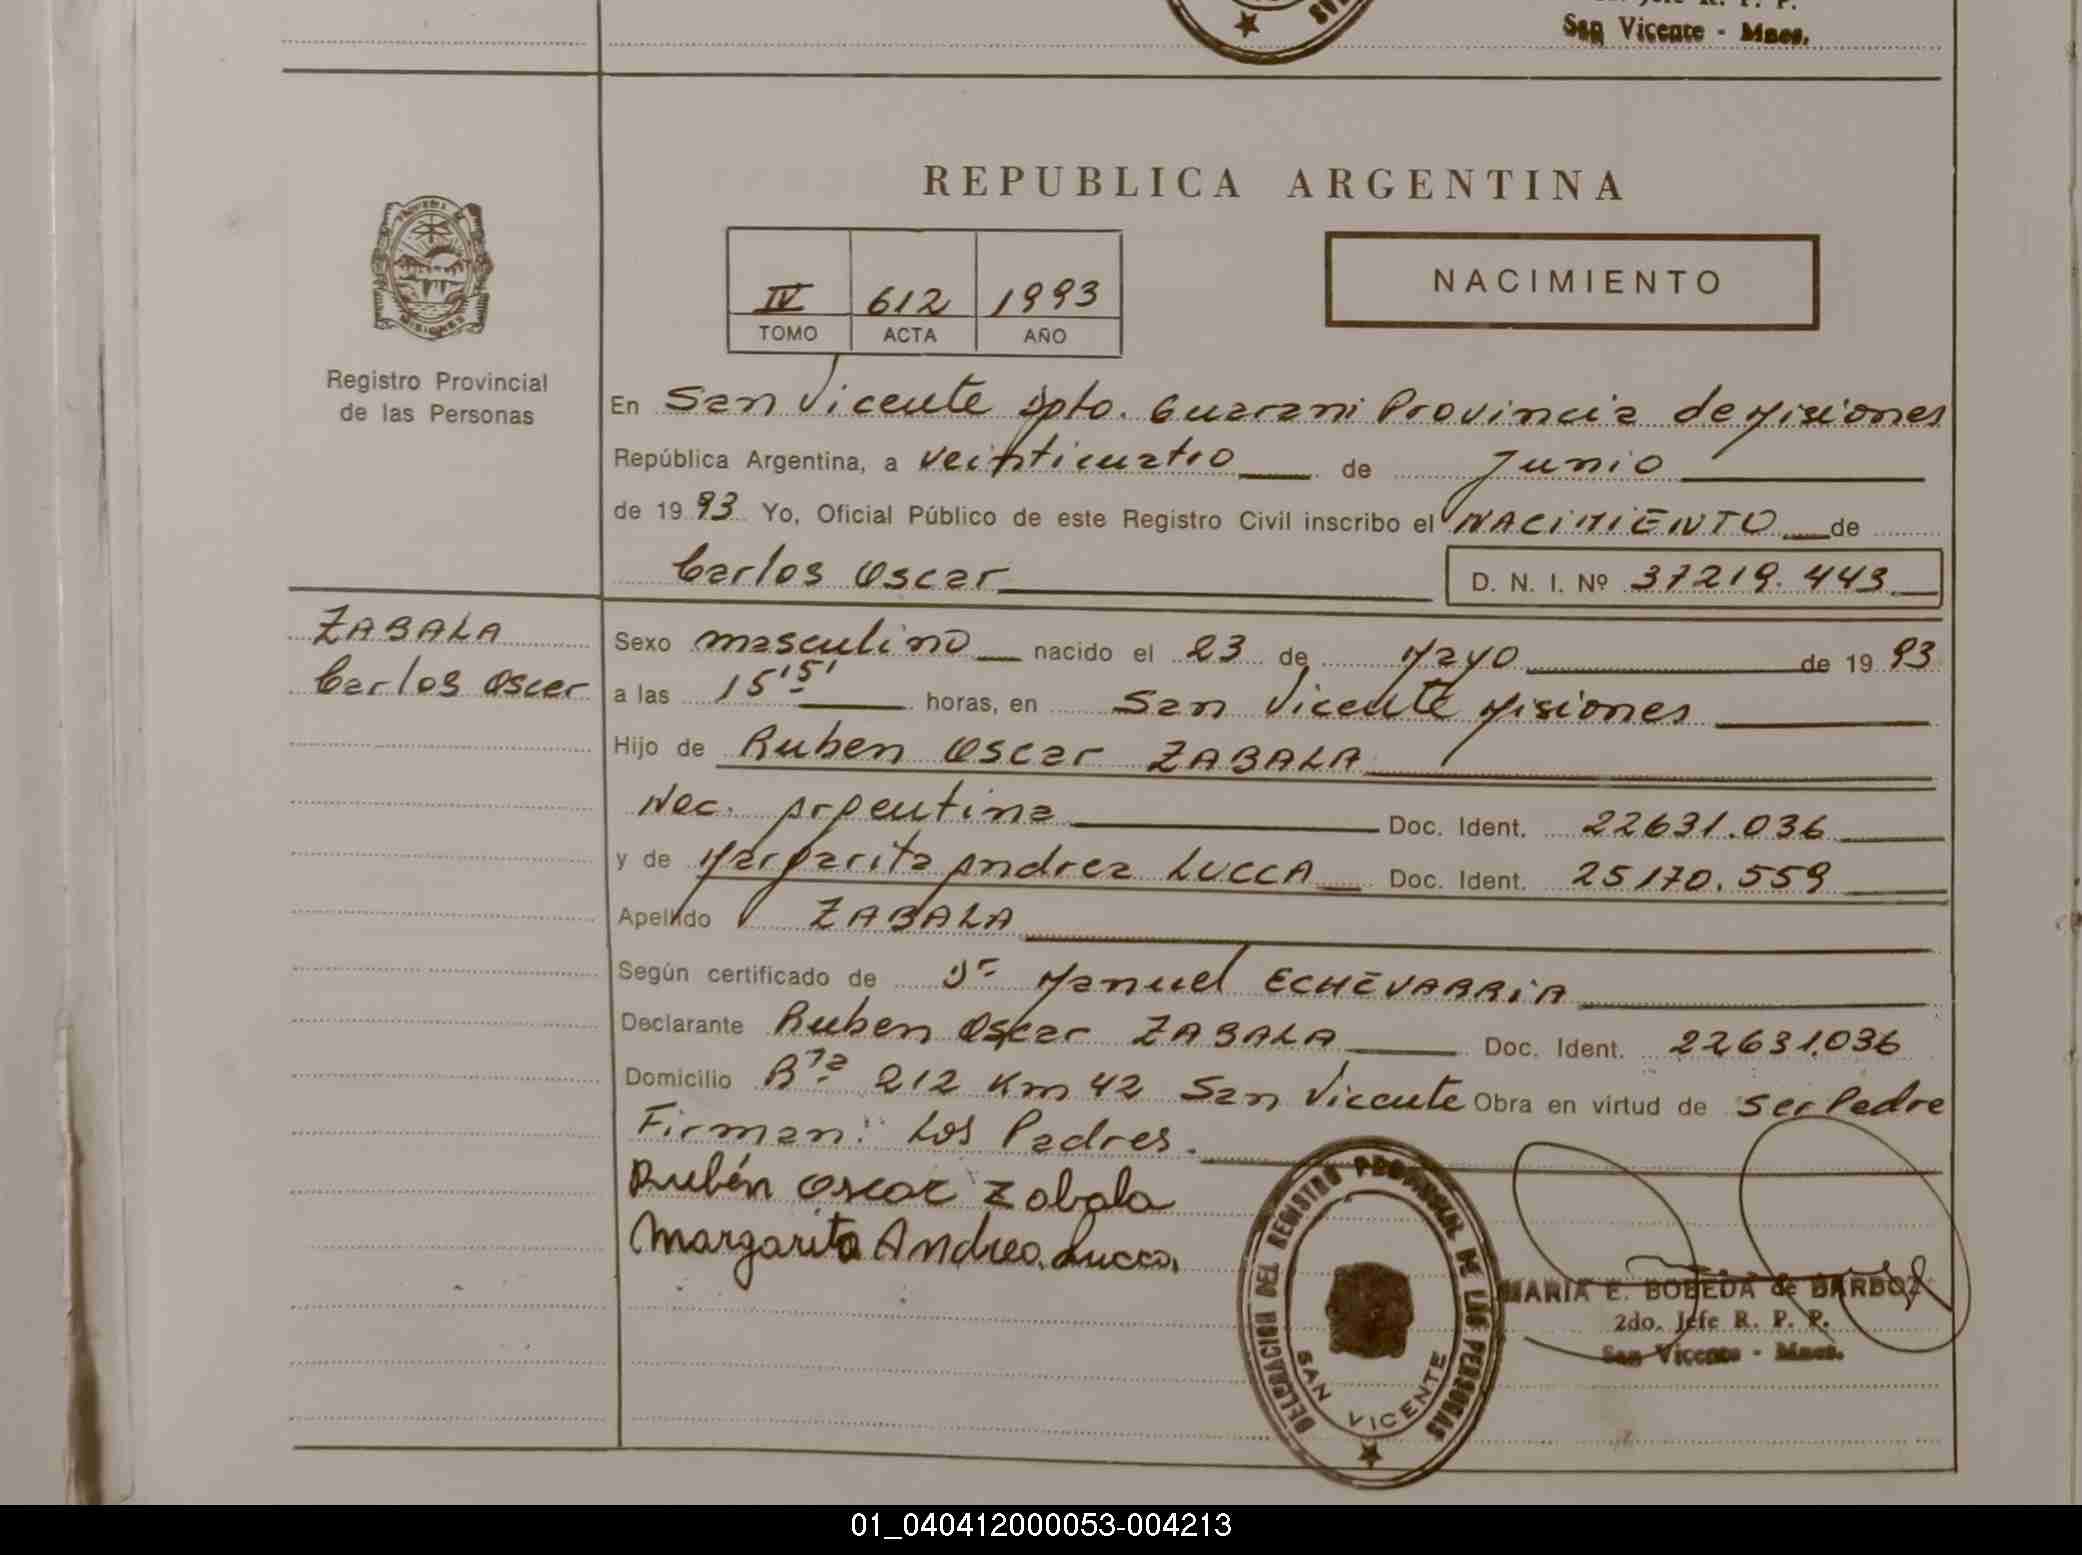 San Vicente - Mnes.
REPUBLICA ARGENTINA
IV 612 1993
TOMO ACTA AÑO
NACIMIENTO
PROVINCIA DE
MISIONES
Registro Provincial
de las Personas
En San Vicente Dpto. Guarani Provincia de Misiones
República Argentina, a veinticuatro de Junio
de 1993 Yo, Oficial Público de este Registro Civil inscribo el NACIMIENTO de
Carlos Oscar D. N. I. Nº 37219.443
ZABALA
Carlos Oscar
Sexo masculino nacido el 23 de Mayo de 1993
a las 15'5' horas, en San Vicente Misiones
Hijo de Ruben Oscar ZABALA
Nac. Argentina Doc. Ident. 22631.036
y de Margarita Andrea LUCCA Doc. Ident. 25170.559
Apellido ZABALA
Según certificado de Dr Manuel ECHEVARRIA
Declarante Ruben Oscar ZABALA Doc. Ident. 22631.036
Domicilio Rta 212 Km 42 San Vicente Obra en virtud de Ser Padre
Firman: Los Padres.
Rubén Oscar Zabala
Margarita Andrea Lucca.
DELEGACION DEL REGISTRO PROVINCIAL DE LAS PERSONAS
SAN VICENTE
MARIA E. BOBEDA de BARBOZ
2do. Jefe R. P. P.
San Vicente - Mnes.
01_040412000053-004213